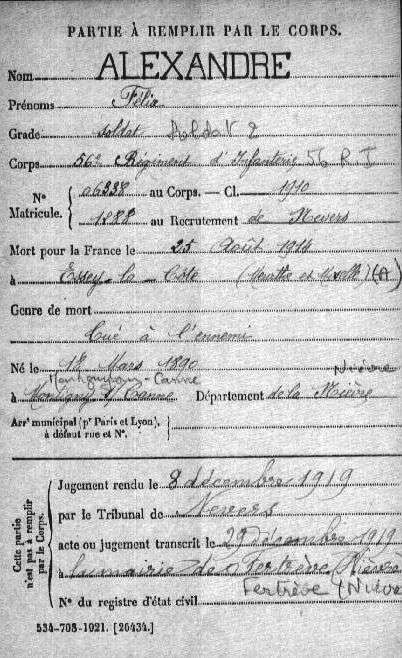 PARTIE À REMPLIR PAR LE CORPS.
Nom ALEXANDRE
Prénoms Félix
Grade soldat Soldat 2
Corps 56e Régiment d'Infanterie 56 R I
N° Matricule. { 06338 au Corps. — Cl. 1910
1888 au Recrutement de Nevers
Mort pour la France le 25 Août 1914
à Essey-la-Côte (Meurthe et Moselle) (A)
Genre de mort
Tué à l'ennemi
Né le 18 Mars 1890
à Montigny s/ Canne Département de la Nièvre Nièvre
Arr' municipal (p' Paris et Lyon), à défaut rue et N°.
Cette partie n'est pas à remplir par le Corps.
Jugement rendu le 8 décembre 1919
par le Tribunal de Nevers
acte ou jugement transcrit le 29 décembre 1919
à la mairie de Fertrève (Nièvre
N° du registre d'état civil Fertrève (Nièvre
534-708-1921. [26434.]